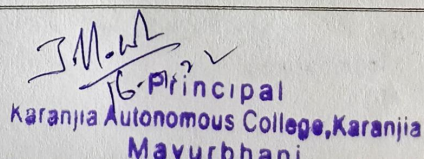 Principal
Karanjia Autonomous College, Karanjia
Mayurbhanj